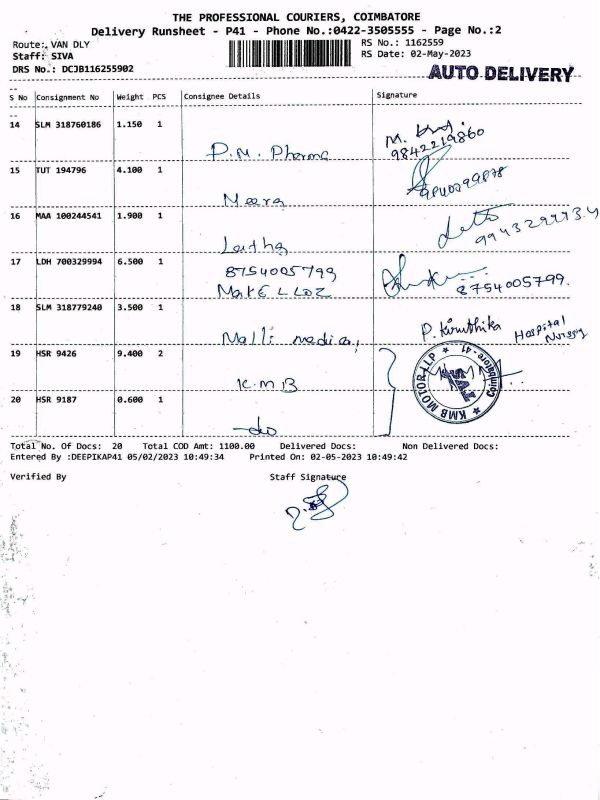 THE PROFESSIONAL COURIERS, COIMBATORE
Delivery Runsheet - P41 - Phone No.:0422-3505555 - Page No.:2
Route: VAN DLY RS No.: 1162559
Staff: SIVA RS Date: 02-May-2023
DRS No.: DCJB116255902 AUTO DELIVERY
S No Consignment No Weight PCS Consignee Details Signature
14 SLM 318760186 1.150 1
P.M. Pharma 9842219860
15 TUT 194796 4.100 1
Meera
16 MAA 100244541 1.900 1
Laitha
17 LDH 700329994 6.500 1 8754005799
MarELLOZ 8754005799.
18 SLM 318779240 3.500 1 P. Kiruthika Hospital
Malli medical Nursing
19 HSR 9426 9.400 2
K.M.B KMB MOTOR LLP Coimbatore-41
20 HSR 9187 0.600 1
do
Total No. Of Docs: 20 Total COD Amt: 1100.00 Delivered Docs: Non Delivered Docs:
Entered By :DEEPIKAP41 05/02/2023 10:49:34 Printed On: 02-05-2023 10:49:42
Verified By Staff Signature